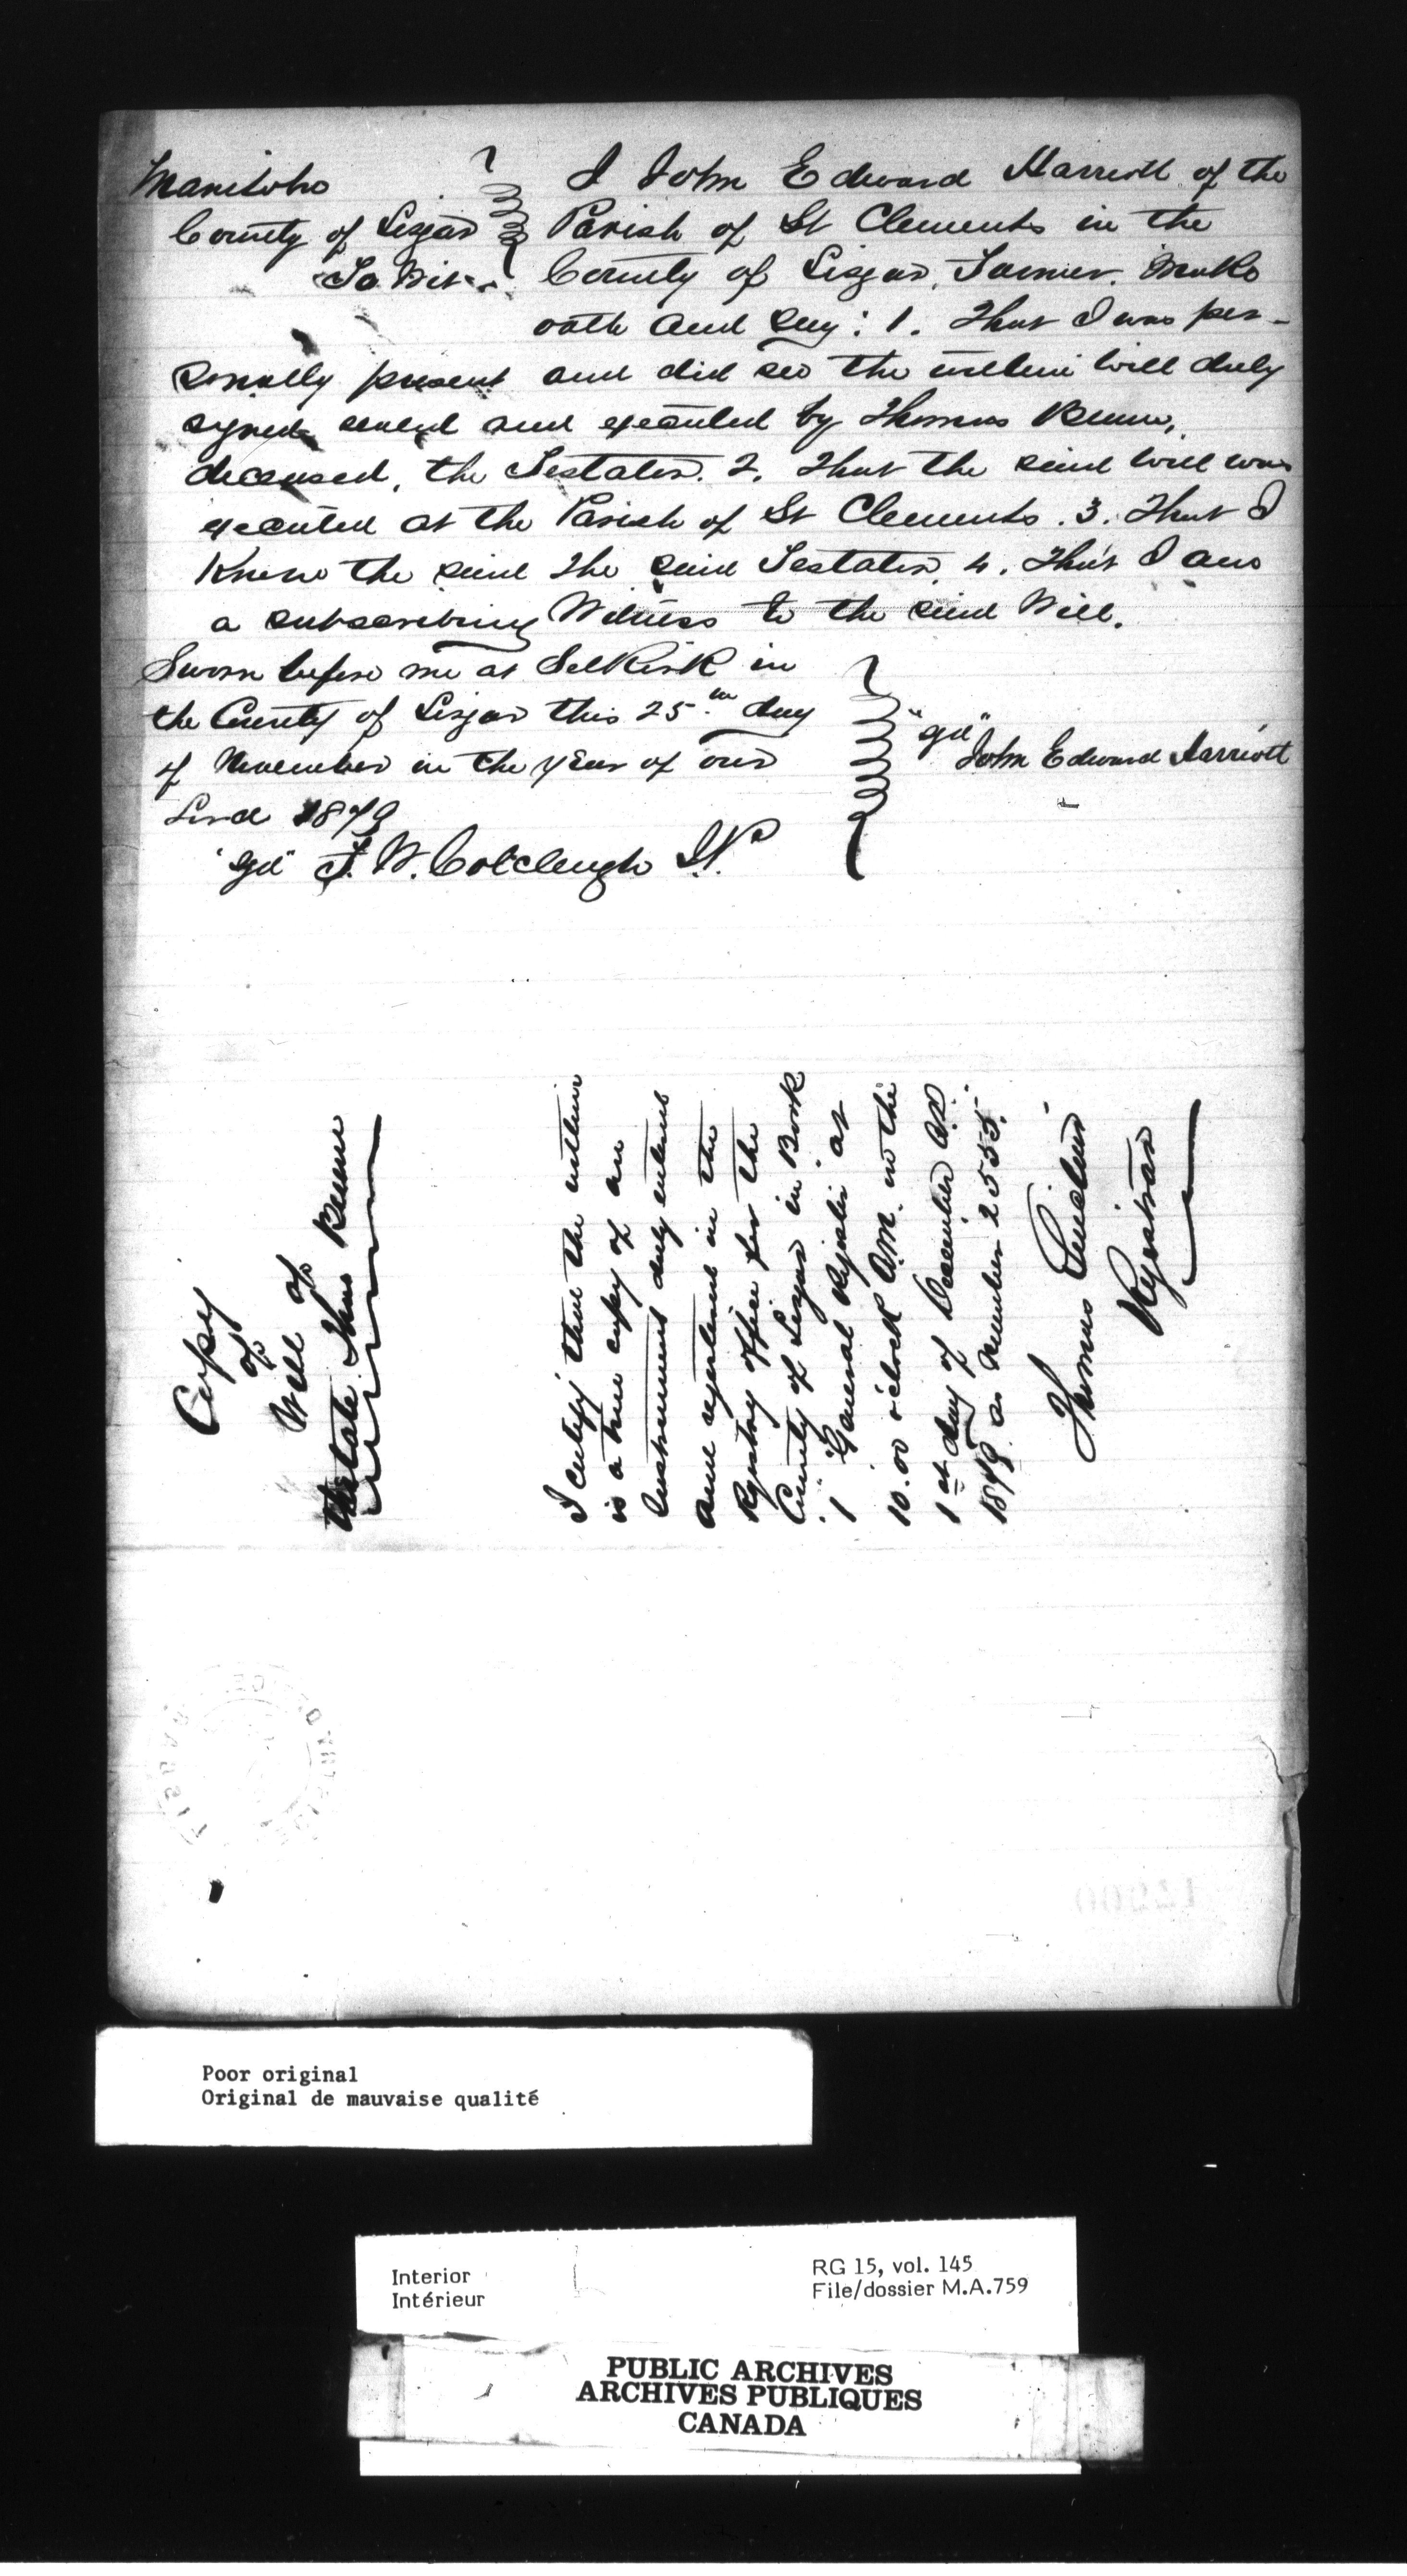 Manitoba
County of Lisgar
To Wit
I John Edward Harriott of the
Parish of St Clements in the
County of Lisgar, Farmer. Make
oath and say: 1. That I was per-
sonally present and did see the within Will duly
signed sealed and executed by Thomas Bunn,
deceased, the Testator. 2. That the said Will was
executed at the Parish of St Clements. 3. That I
Knew the said the said Testator. 4. That I am
a subscribing Witness to the said Will.
Sworn before me at Selkirk in
the County of Lisgar this 25th day
of November in the year of our
Lord 1879
"Sgd" F. W. Colcleugh J.P.
"Sgd"
John Edward Harriott
Copy
of
Will of
Thos Bunn
I Certify that the within
is a true copy of an
Instrument duly entered
and registered in the
Registry Office for the
County of Lisgar in Book
1 "General Register" at
10.00 o'clock A.M. on the
1st day of December A.D.
1879 as Number 2555.
Thomas
Registrar
Poor original
Original de mauvaise qualité
Interior
Intérieur
RG 15, vol. 145
File/dossier M.A.759
PUBLIC ARCHIVES
ARCHIVES PUBLIQUES
CANADA